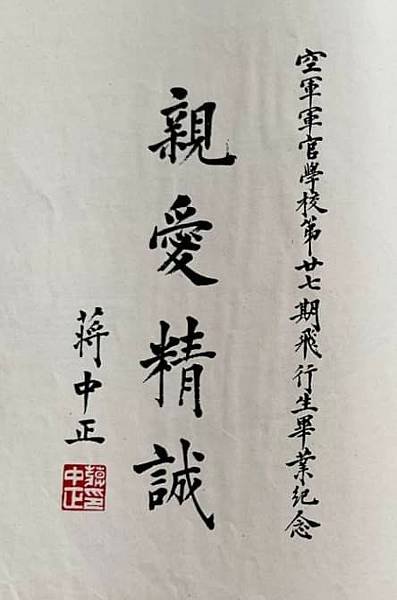 空軍軍官學校第廿七期飛行生畢業紀念
親愛精誠
蔣中正
蔣中正印